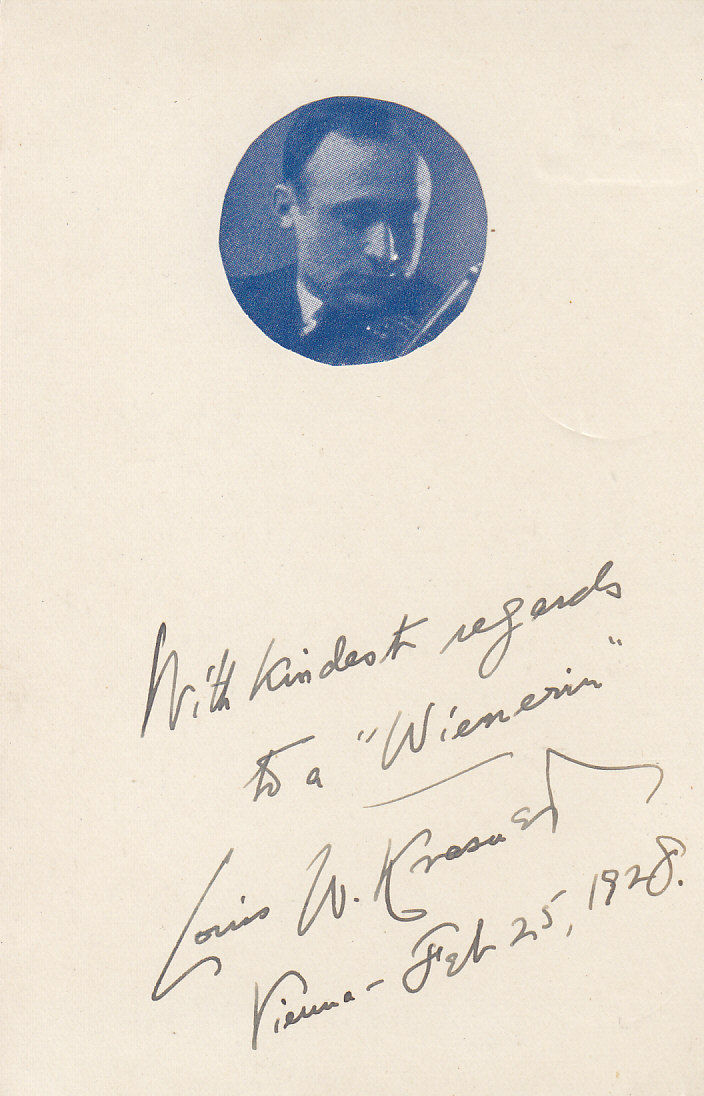 With kindest regards
to a "Wienerin"
Louis W. Krasner
Vienna - Feb 25, 1928.